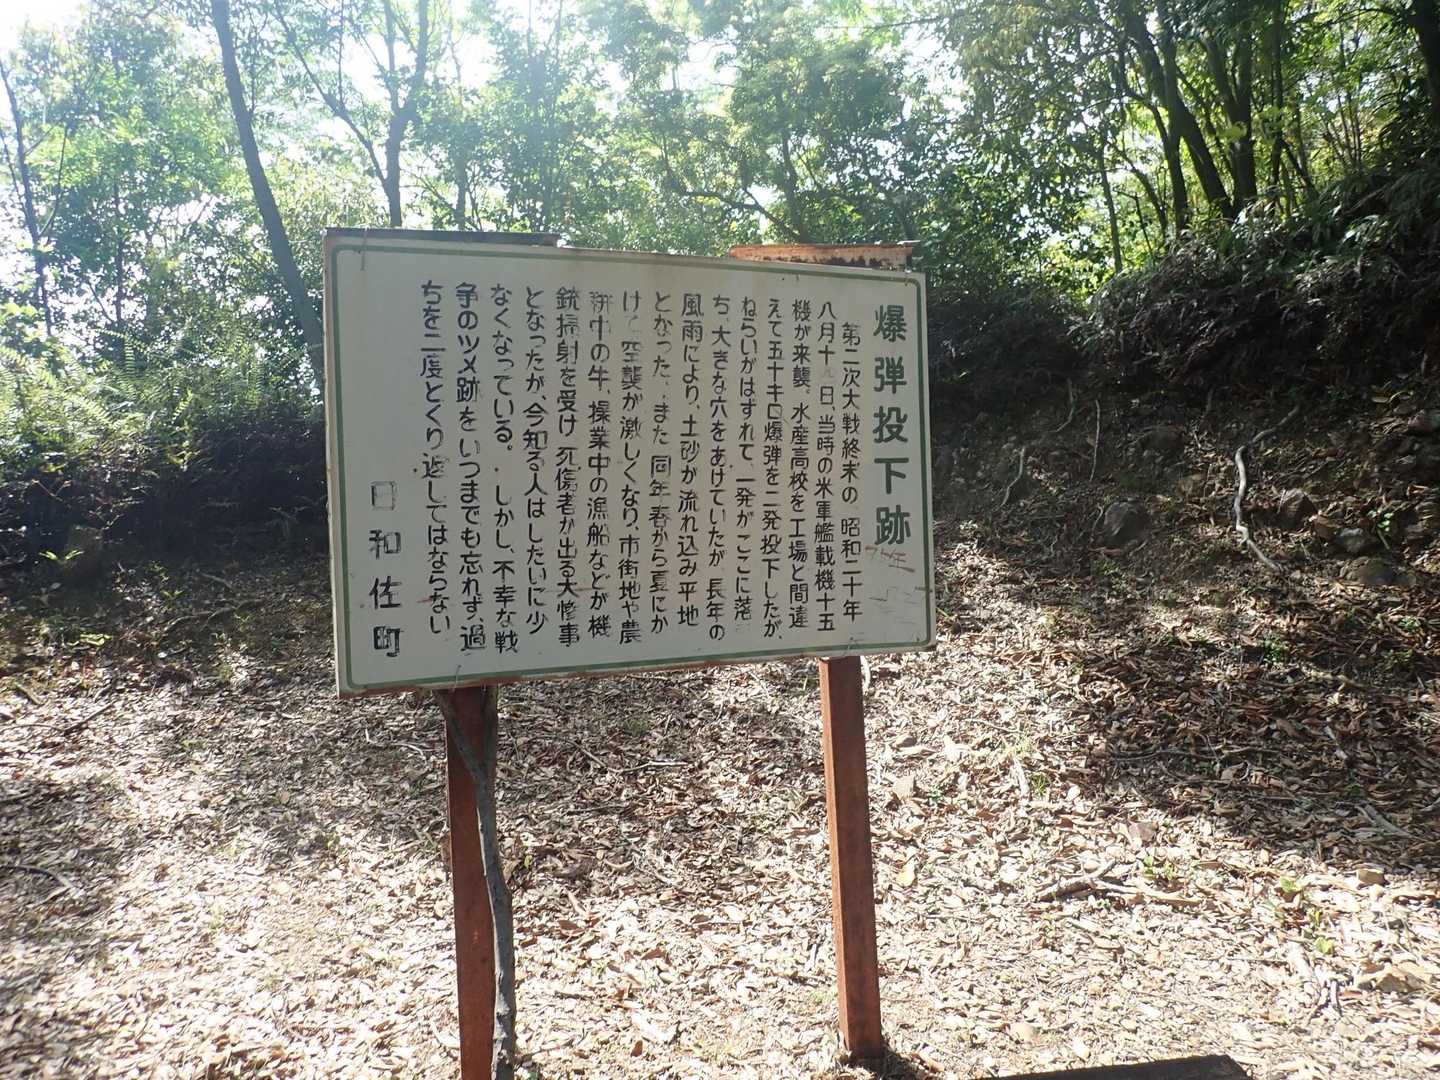 爆弾投下跡
第二次大戦終末の、昭和二十年
八月十 日、当時の米軍艦載機十五
機が来襲。水産高校を工場と間違
えて五十キロ爆弾を二発投下したが、
ねらいがはずれて、一発がここに落
ち、大きな穴をあけていたが、長年の
風雨により、土砂が流れ込み平地
となった。また同年春から夏にか
けて空襲が激しくなり、市街地や農
耕中の牛、操業中の漁船などが機
銃掃射を受け死傷者が出る大惨事
となったが、今知る人はしだいに少
なくなっている。しかし、不幸な戦
争のツメ跡をいつまでも忘れず、過
ちを二度とくり返してはならない
日和佐町